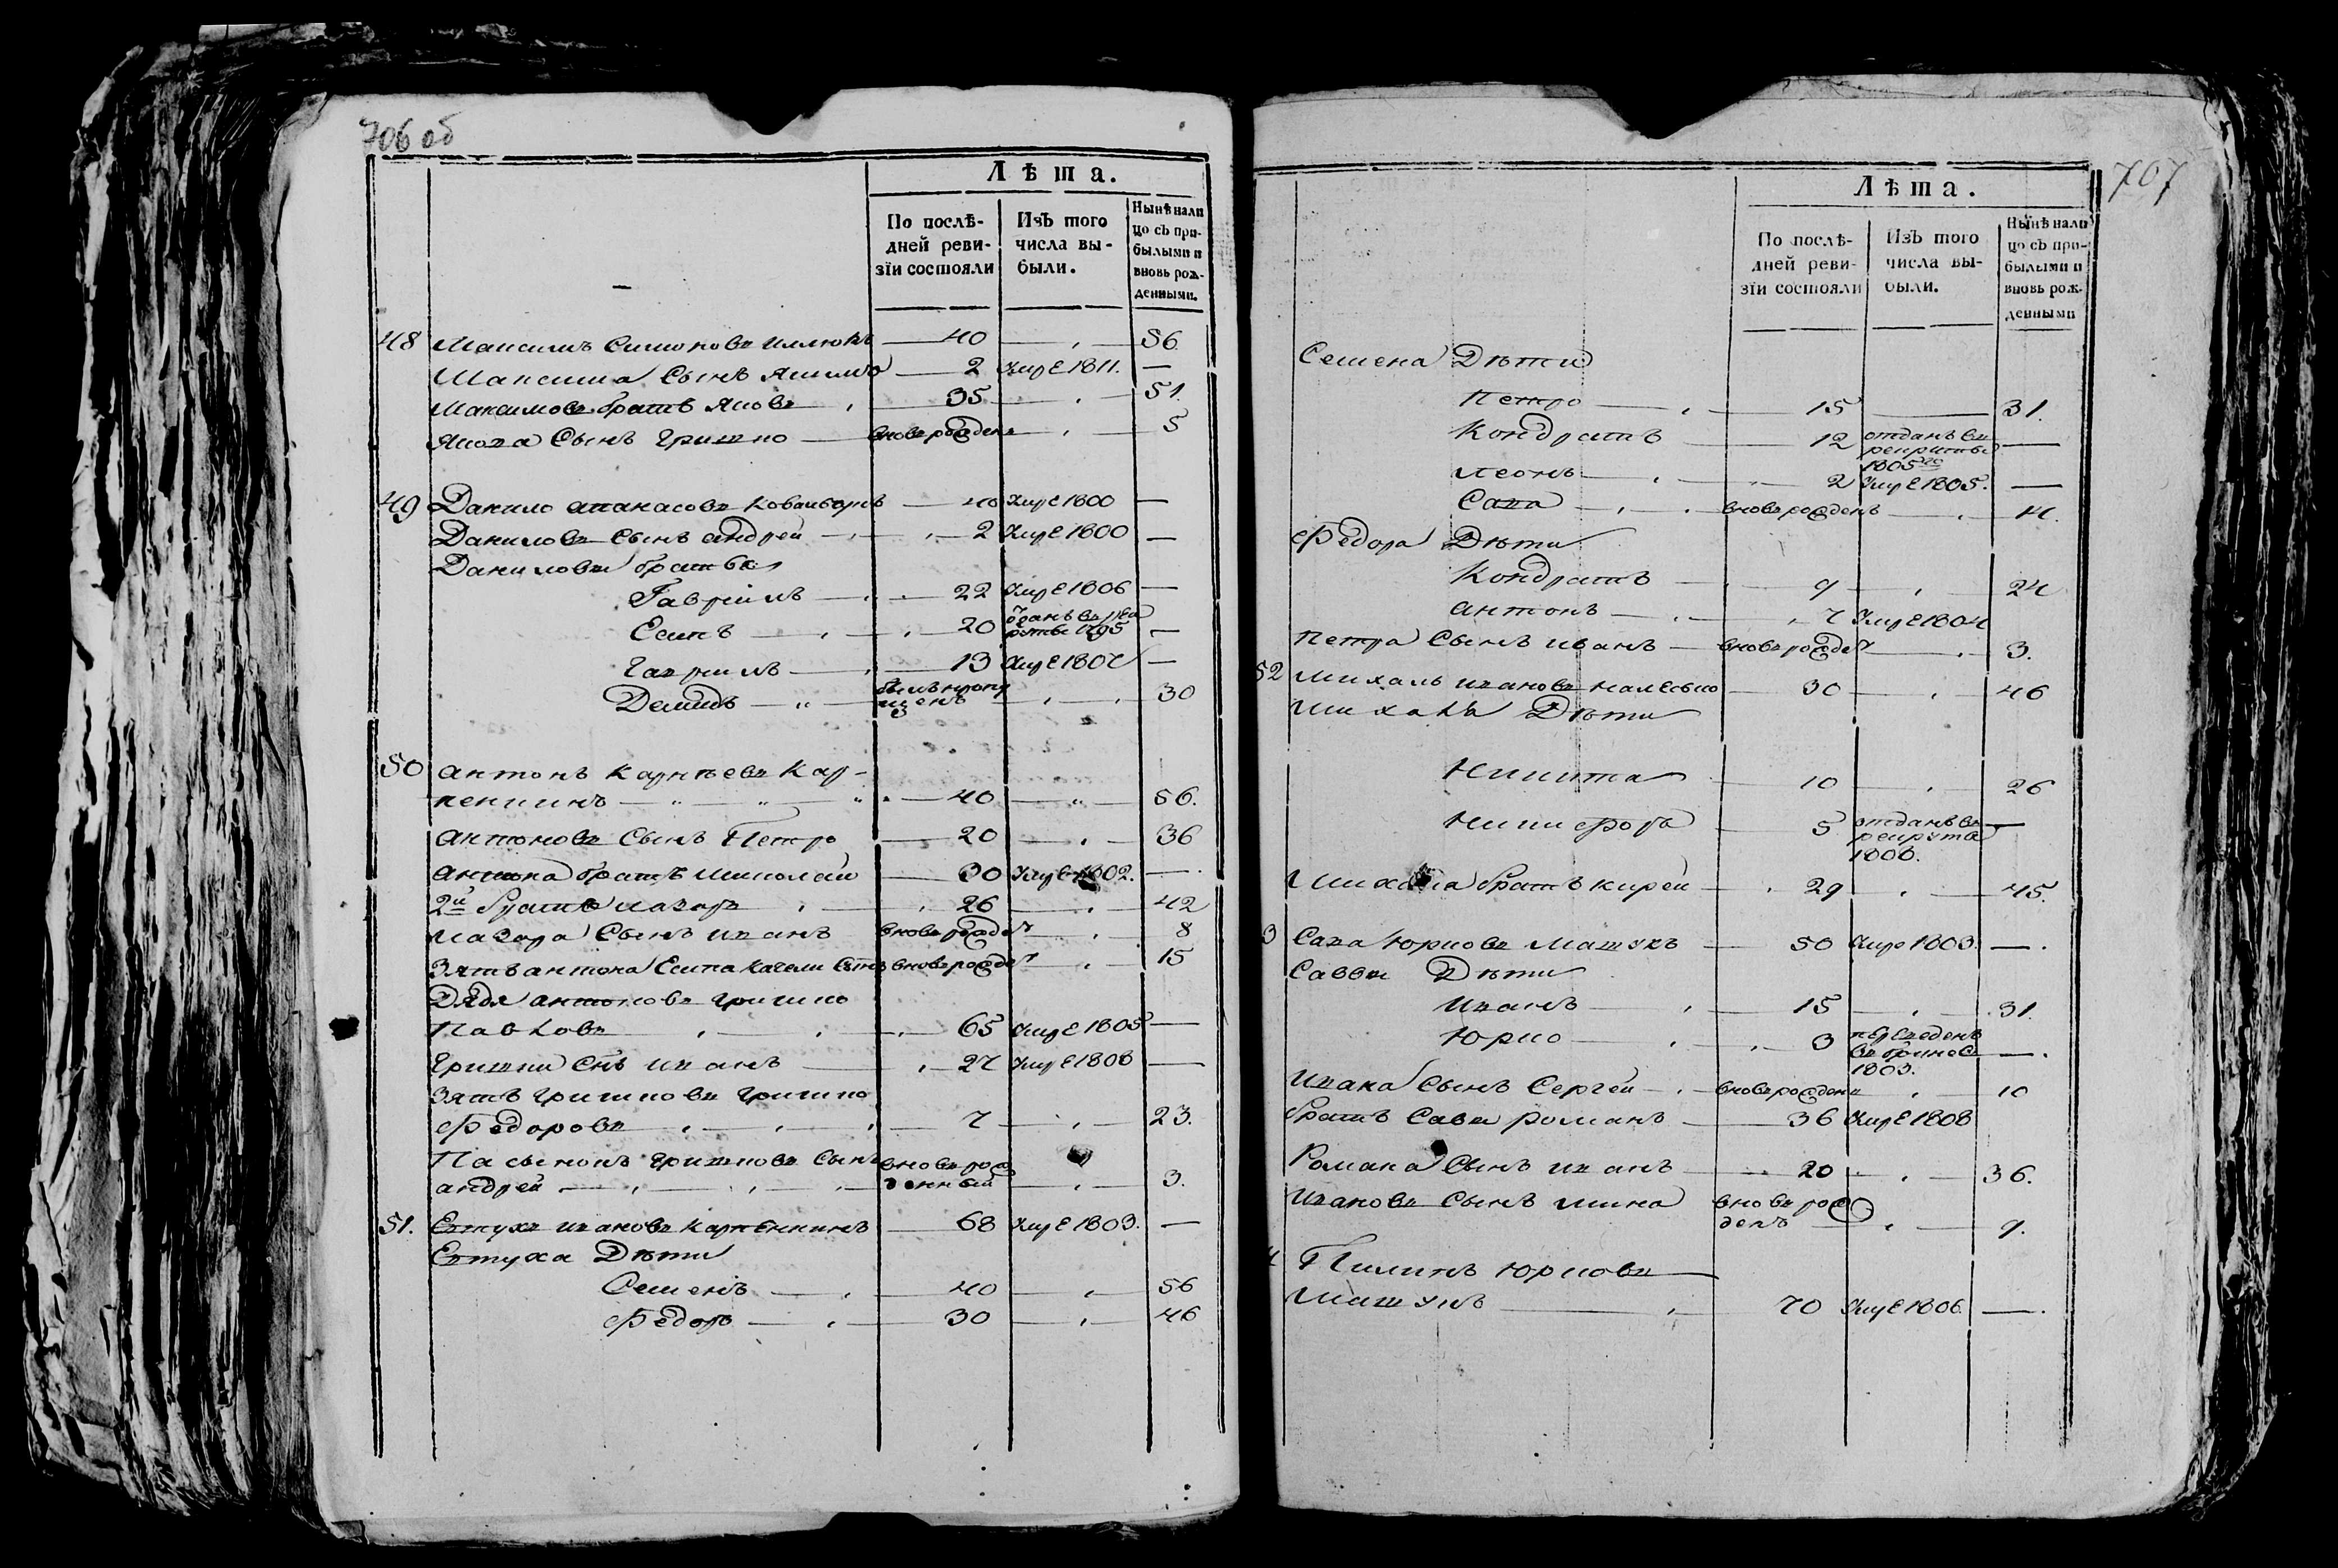 706 об
Лѣта.
По послѣ-
дней реви-
зїи состояли
Изъ того
числа вы-
были.
Нынѣ нали
цо съ при-
былыми и
вновь рож-
денными.
48 Максимъ Симоновъ — 40 — 56.
Максима Сынъ — 2 Умре 1811. —
Максимовъ братъ Яковъ — 35 — 51.
Якова Сынъ Гришко — вновь рожденъ — 5
49 Данило Апанасовъ — 40 Умре 1800 —
Даниловъ Сынъ Андрей — 2 Умре 1800 —
Даниловы братья
Гаврiилъ — 22 Умре 1806 —
Есипъ — 20 1795 —
13 Умре 1807 —
Демидъ — былъ пропу
щенъ — 30
50 Антонъ Карпѣевъ Кар-
пенкинъ — 40 — 56.
Антоновъ Сынъ Петро — 20 — 36
Антона братъ Миколай — 30 Умре 1802. —
2й братъ Лазарь — 26 — 42
Лазара Сынъ Иванъ вновь рожде — 8
Зять Антона Есипа Сынъ вновь рожде — 15
Дядя Антоновъ Гришко
Павловъ — 65 Умре 1805 —
Гришки Снъ Иванъ — 27 Умре 1808 —
Зять Гришковъ Гришко
Федоровъ — 7 — 23.
Пасынокъ Гришковъ Сынъ вновь рож
Андрей — денный — 3.
51. Евтухъ Ивановъ Карпенкинъ — 68 Умре 1803. —
Евтуха Дѣти
Семенъ — 40 — 56
Федоръ — 30 — 46
707
Лѣта.
По послѣ-
дней реви-
зїи состояли
Изъ того
числа вы-
были.
Нынѣ нали
цо съ при-
былыми и
вновь рож-
денными
Семена Дѣти
Петро — 15 — 31.
Кондратъ — 12 отданъ въ
рекруты
1805го —
Леонъ — 2 Умре 1805. —
Сава — вновь рожденъ — 14.
Федора Дѣти
Кондратъ — 9 — 24
Антонъ — 7 Умре 1804
Петра Сынъ Иванъ — вновь рожде — 3.
52 Михаль Ивановъ — 30 — 46
Михала Дѣти
Никита — 10 — 26
Никифоръ — 5 отданъ въ —
рекруты
1808.
Михала братъ Кирей — 29 — 45.
3 Сава Юрковъ Машукъ — 50 Умре 1803. —
Саввы Дѣти
Иванъ — 15 — 31.
Юрко — 3 переведенъ
1803. —
Ивана Сынъ Сергей — вновь рожденъ — 10
братъ Савы Романъ — 36 Умре 1808
Романа Сынъ Иванъ — 20 — 36.
Ивановъ Сынъ Мина вновь рож
денъ — 9.
4 Пилипъ Юрковъ
Машукъ — 70 Умре 1806. —